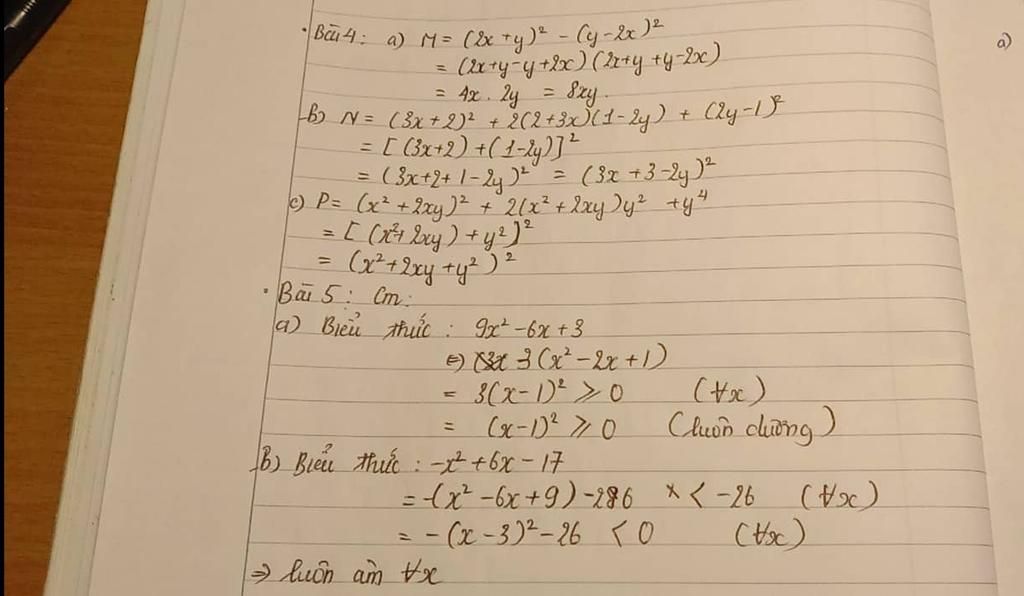 Bài 4: a) M = (2x+y)² - (y-2x)²
= (2x+y-y+2x)(2x+y+y-2x)
= 4x . 2y = 8xy.
b) N = (3x+2)² + 2(2+3x)(1-2y) + (2y-1)²
= [(3x+2)+(1-2y)]²
= (3x+2+1-2y)² = (3x+3-2y)²
c) P = (x²+2xy)² + 2(x²+2xy)y² + y⁴
= [(x²+2xy)+y²]²
= (x²+2xy+y²)²
Bài 5: Cm:
a) Biểu thức: 9x²-6x+3
⇔ 3(x²-2x+1)
= 3(x-1)² ⩾ 0 (∀x)
= (x-1)² ⩾ 0 (luôn dương)
b) Biểu thức: -x²+6x-17
= -(x²-6x+9)-26 < -26 (∀x)
= -(x-3)²-26 < 0 (∀x)
⇒ luôn âm ∀x
a)